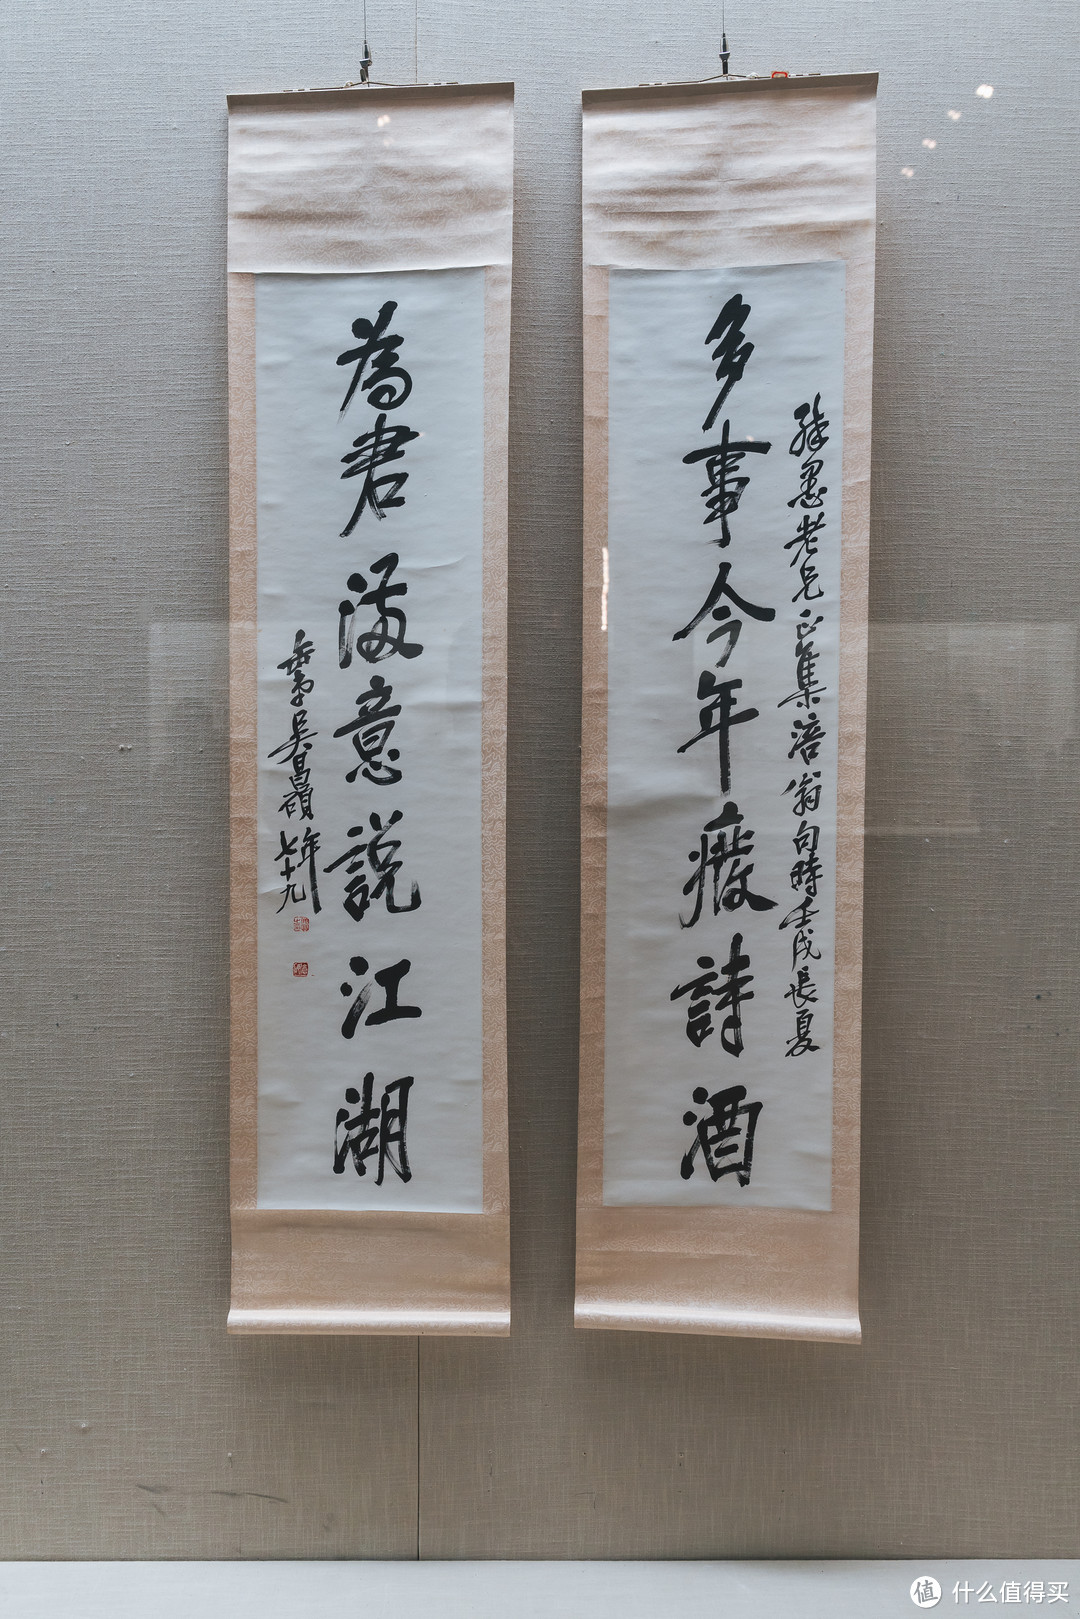 多事今年廢詩酒
老兄正集涪翁句時壬戌長夏
為君滿意說江湖
弟吳昌碩年七十九
值 什么值得买